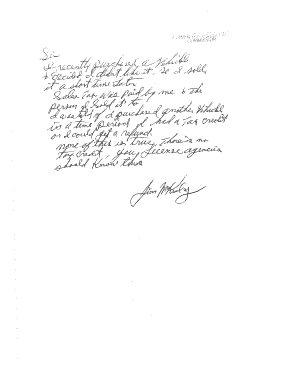 Sir
I recently purchased a Vehicle
& decided I didn't like it. So I sold it
a short time later
Sales Tax was paid by me & the
person I sold it to
I was told if I purchased another Vehicle
in a time period I had a Tax credit
or I could get a refund.
none of this is true, there's no
tax credit, you, License agencies
should know this
Jim